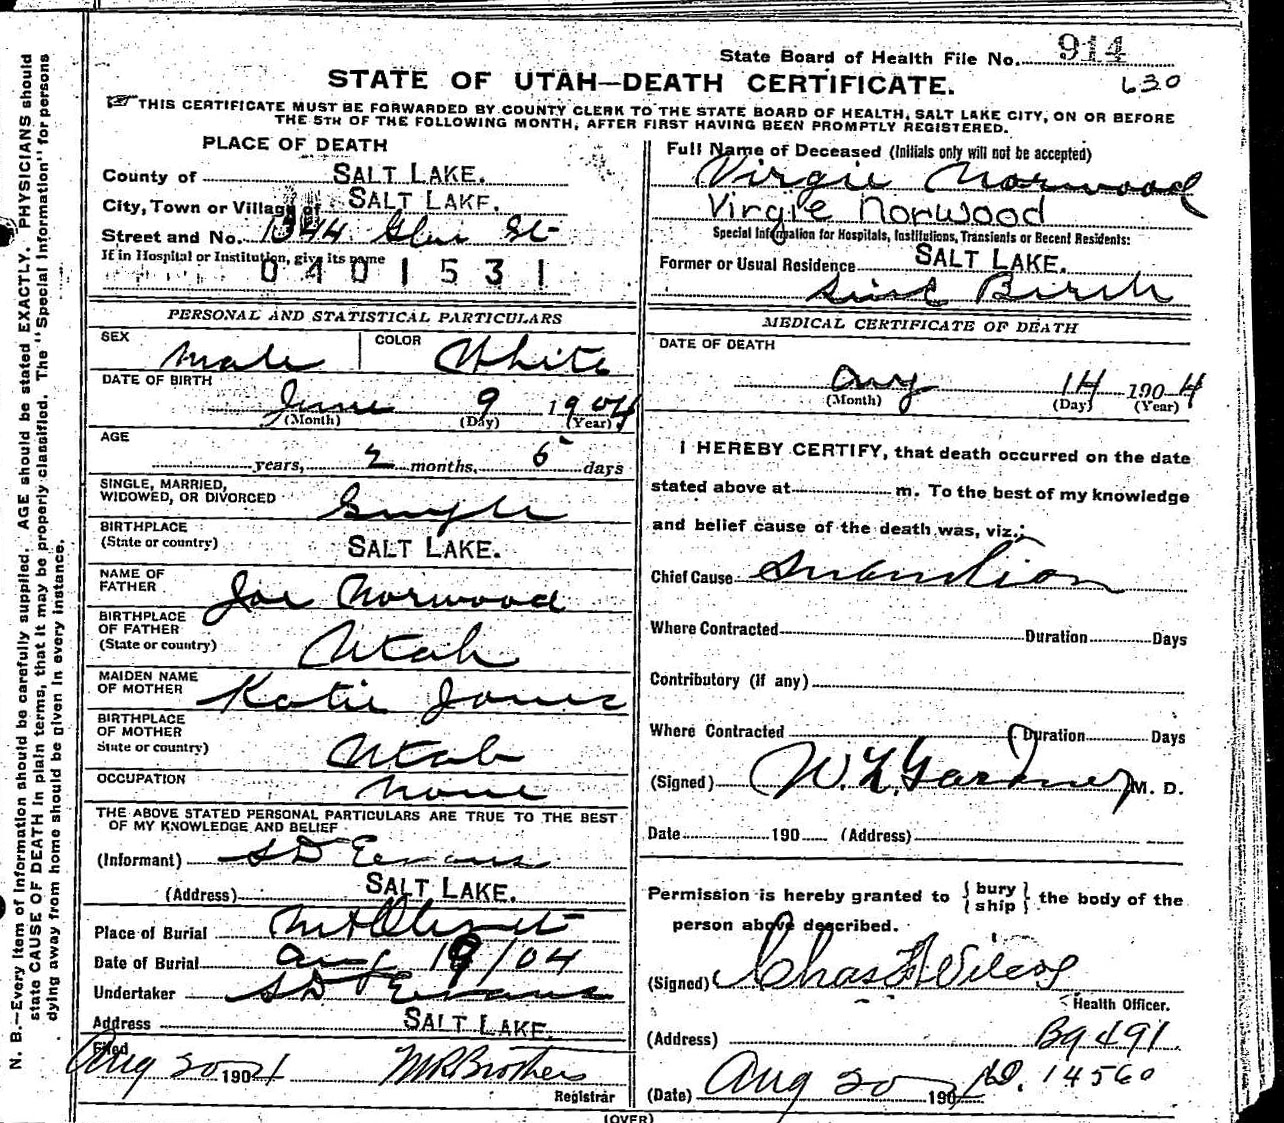 State Board of Health File No. 914
STATE OF UTAH—DEATH CERTIFICATE.
630
THIS CERTIFICATE MUST BE FORWARDED BY COUNTY CLERK TO THE STATE BOARD OF HEALTH, SALT LAKE CITY, ON OR BEFORE
THE 5TH OF THE FOLLOWING MONTH, AFTER FIRST HAVING BEEN PROMPTLY REGISTERED.
PLACE OF DEATH
County of SALT LAKE.
City, Town or Village of SALT LAKE.
Street and No. 1344 St
If in Hospital or Institution, give its name
0401531
Full Name of Deceased (Initials only will not be accepted)
Virgie Norwood
Virgie Norwood
Special Information for Hospitals, Institutions, Transients or Recent Residents:
Former or Usual Residence SALT LAKE.
Since Birth
PERSONAL AND STATISTICAL PARTICULARS
SEX Male COLOR White
DATE OF BIRTH
June 9 1904
(Month) (Day) (Year)
AGE
years, 2 months, 5 days
SINGLE, MARRIED,
WIDOWED, OR DIVORCED Single
BIRTHPLACE
(State or country) SALT LAKE.
NAME OF
FATHER Joe Norwood
BIRTHPLACE
OF FATHER
(State or country) Utah
MAIDEN NAME
OF MOTHER Katie Jones
BIRTHPLACE
OF MOTHER
State or country) Utah
OCCUPATION None
THE ABOVE STATED PERSONAL PARTICULARS ARE TRUE TO THE BEST
OF MY KNOWLEDGE AND BELIEF
(Informant) S D Eevans
(Address) SALT LAKE.
Place of Burial Mt Olivet
Date of Burial Aug 19/04
Undertaker S D Eevans
Address SALT LAKE.
Filed
Aug 20 1904 M R Brothers
Registrar
MEDICAL CERTIFICATE OF DEATH
DATE OF DEATH
Aug 14 1904
(Month) (Day) (Year)
I HEREBY CERTIFY, that death occurred on the date
stated above at m. To the best of my knowledge
and belief cause of the death was, viz.:
Chief Cause Inanition
Where Contracted Duration Days
Contributory (If any)
Where Contracted Duration Days
(Signed) W. L. Gardner M. D.
Date 190 (Address)
Permission is hereby granted to {bury
ship} the body of the
person above described.
(Signed) Chas F Wilcox
Health Officer.
(Address) B9 491
(Date) Aug 20 1904 No. 14560
(OVER)
N. B.—Every item of information should be carefully supplied. AGE should be stated EXACTLY. PHYSICIANS should
state CAUSE OF DEATH in plain terms, that it may be properly classified. The "Special Information" for persons
dying away from home should be given in every instance.